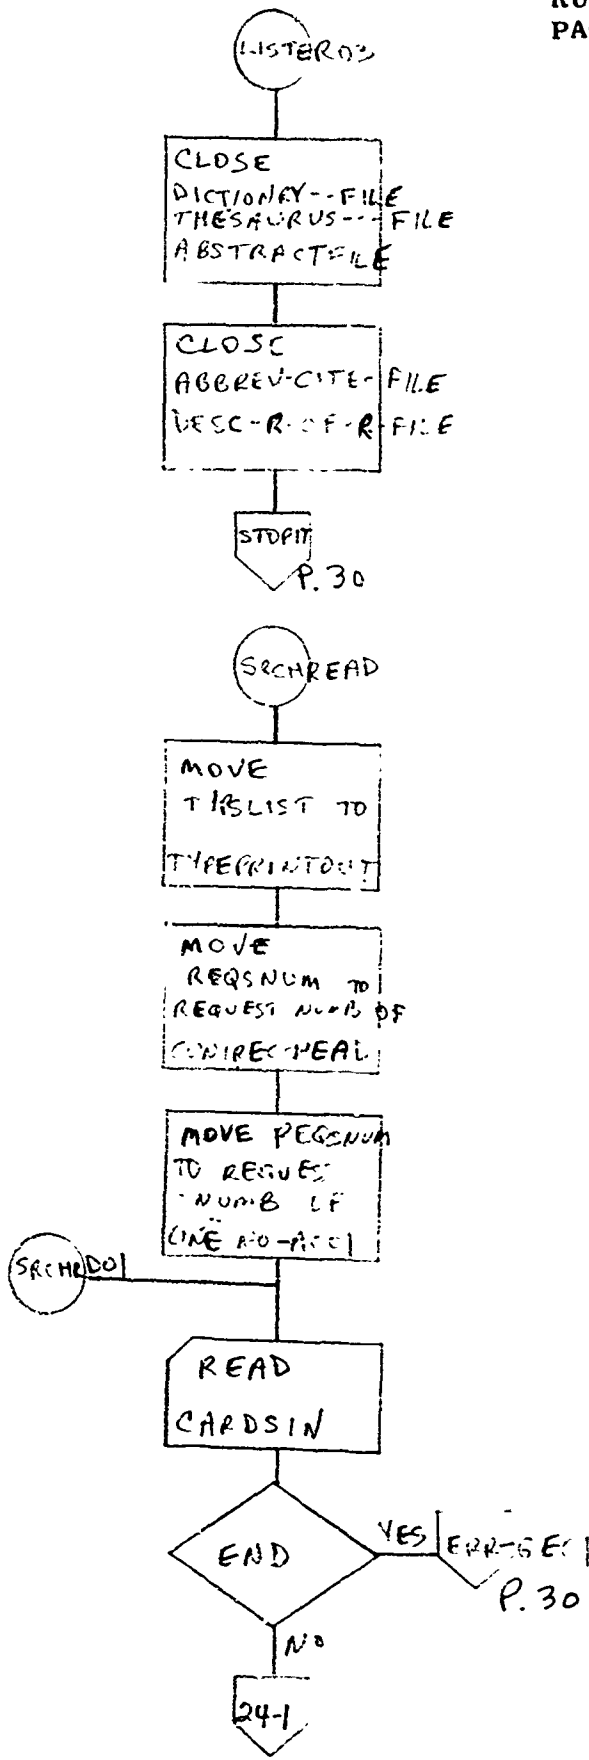 RU
PA
LISTER03
CLOSE
DICTIONRY--FILE
THESAURUS---FILE
ABSTRACTFILE
CLOSE
ABBREV-CITE-FILE
DESC-R-OF-R-FILE
STOPIT
P. 30
SRCHREAD
MOVE
LIST TO
TYPEPRINTOUT
MOVE
REQSNUM TO
REQUEST NUMB OF
MOVE REQSNUM
TO REQUES
NUMB OF
LINE NO-ACC1
SRCHRD01
READ
CARDSIN
END
YES
P. 30
NO
24-1